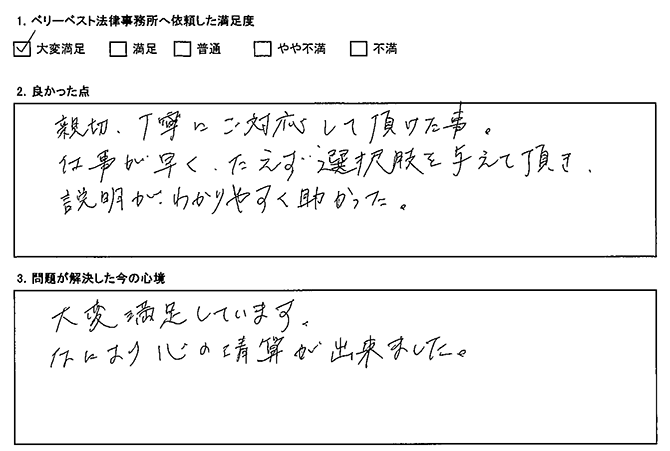 1. ベリーベスト法律事務所へ依頼した満足度
大変満足 満足 普通 やや不満 不満
2. 良かった点
親切、丁寧にご対応して頂けた事。
仕事が早く、たえず選択肢を与えて頂き、
説明がわかりやすく助かった。
3. 問題が解決した今の心境
大変満足しています。
なにより心の清算が出来ました。